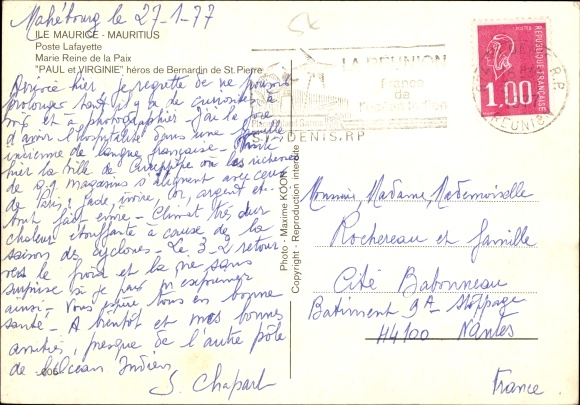 Mahébourg le 27-1-77
ILE MAURICE - MAURITIUS
Poste Lafayette
Marie Reine de la Paix
"PAUL et VIRGINIE" héros de Bernardin de St. Pierre
Arrivé hier, je regrette de ne pouvoir
prolonger tant il y a de curiosités à
voir et à photographier. J'ai la joie
d'avoir l'hospitalité dans une famille
ancienne de langue française. Visité
hier la ville de Curepipe où les richesses
de magasins s'alignent avec ceux
de Paris: jade, ivoire, or, argent et..
tout fait envie. Climat très dur
chaleur étouffante à cause de la
saison des cyclones. Le 3-2 retour
vers le froid et la vie sans
surprise si je puis m'exprimer
ainsi. Vous espère tous en bonne
santé. A bientôt et mes bonnes
amitiés, presque de l'autre pôle
de l'Océan Indien
S. Chapart
606
Photo - Maxime KOON
Copyright - Reproduction interdite
LA RÉUNION
France
de
l'océan indien
ST DENIS.RP
REPUBLIQUE FRANÇAISE
1,00
R.P.
REUNION
Monsieur, Madame, Mademoiselle
Rochereau et famille
Cité Babonneau
Batiment 9A - Stoppage
44100 Nantes
France